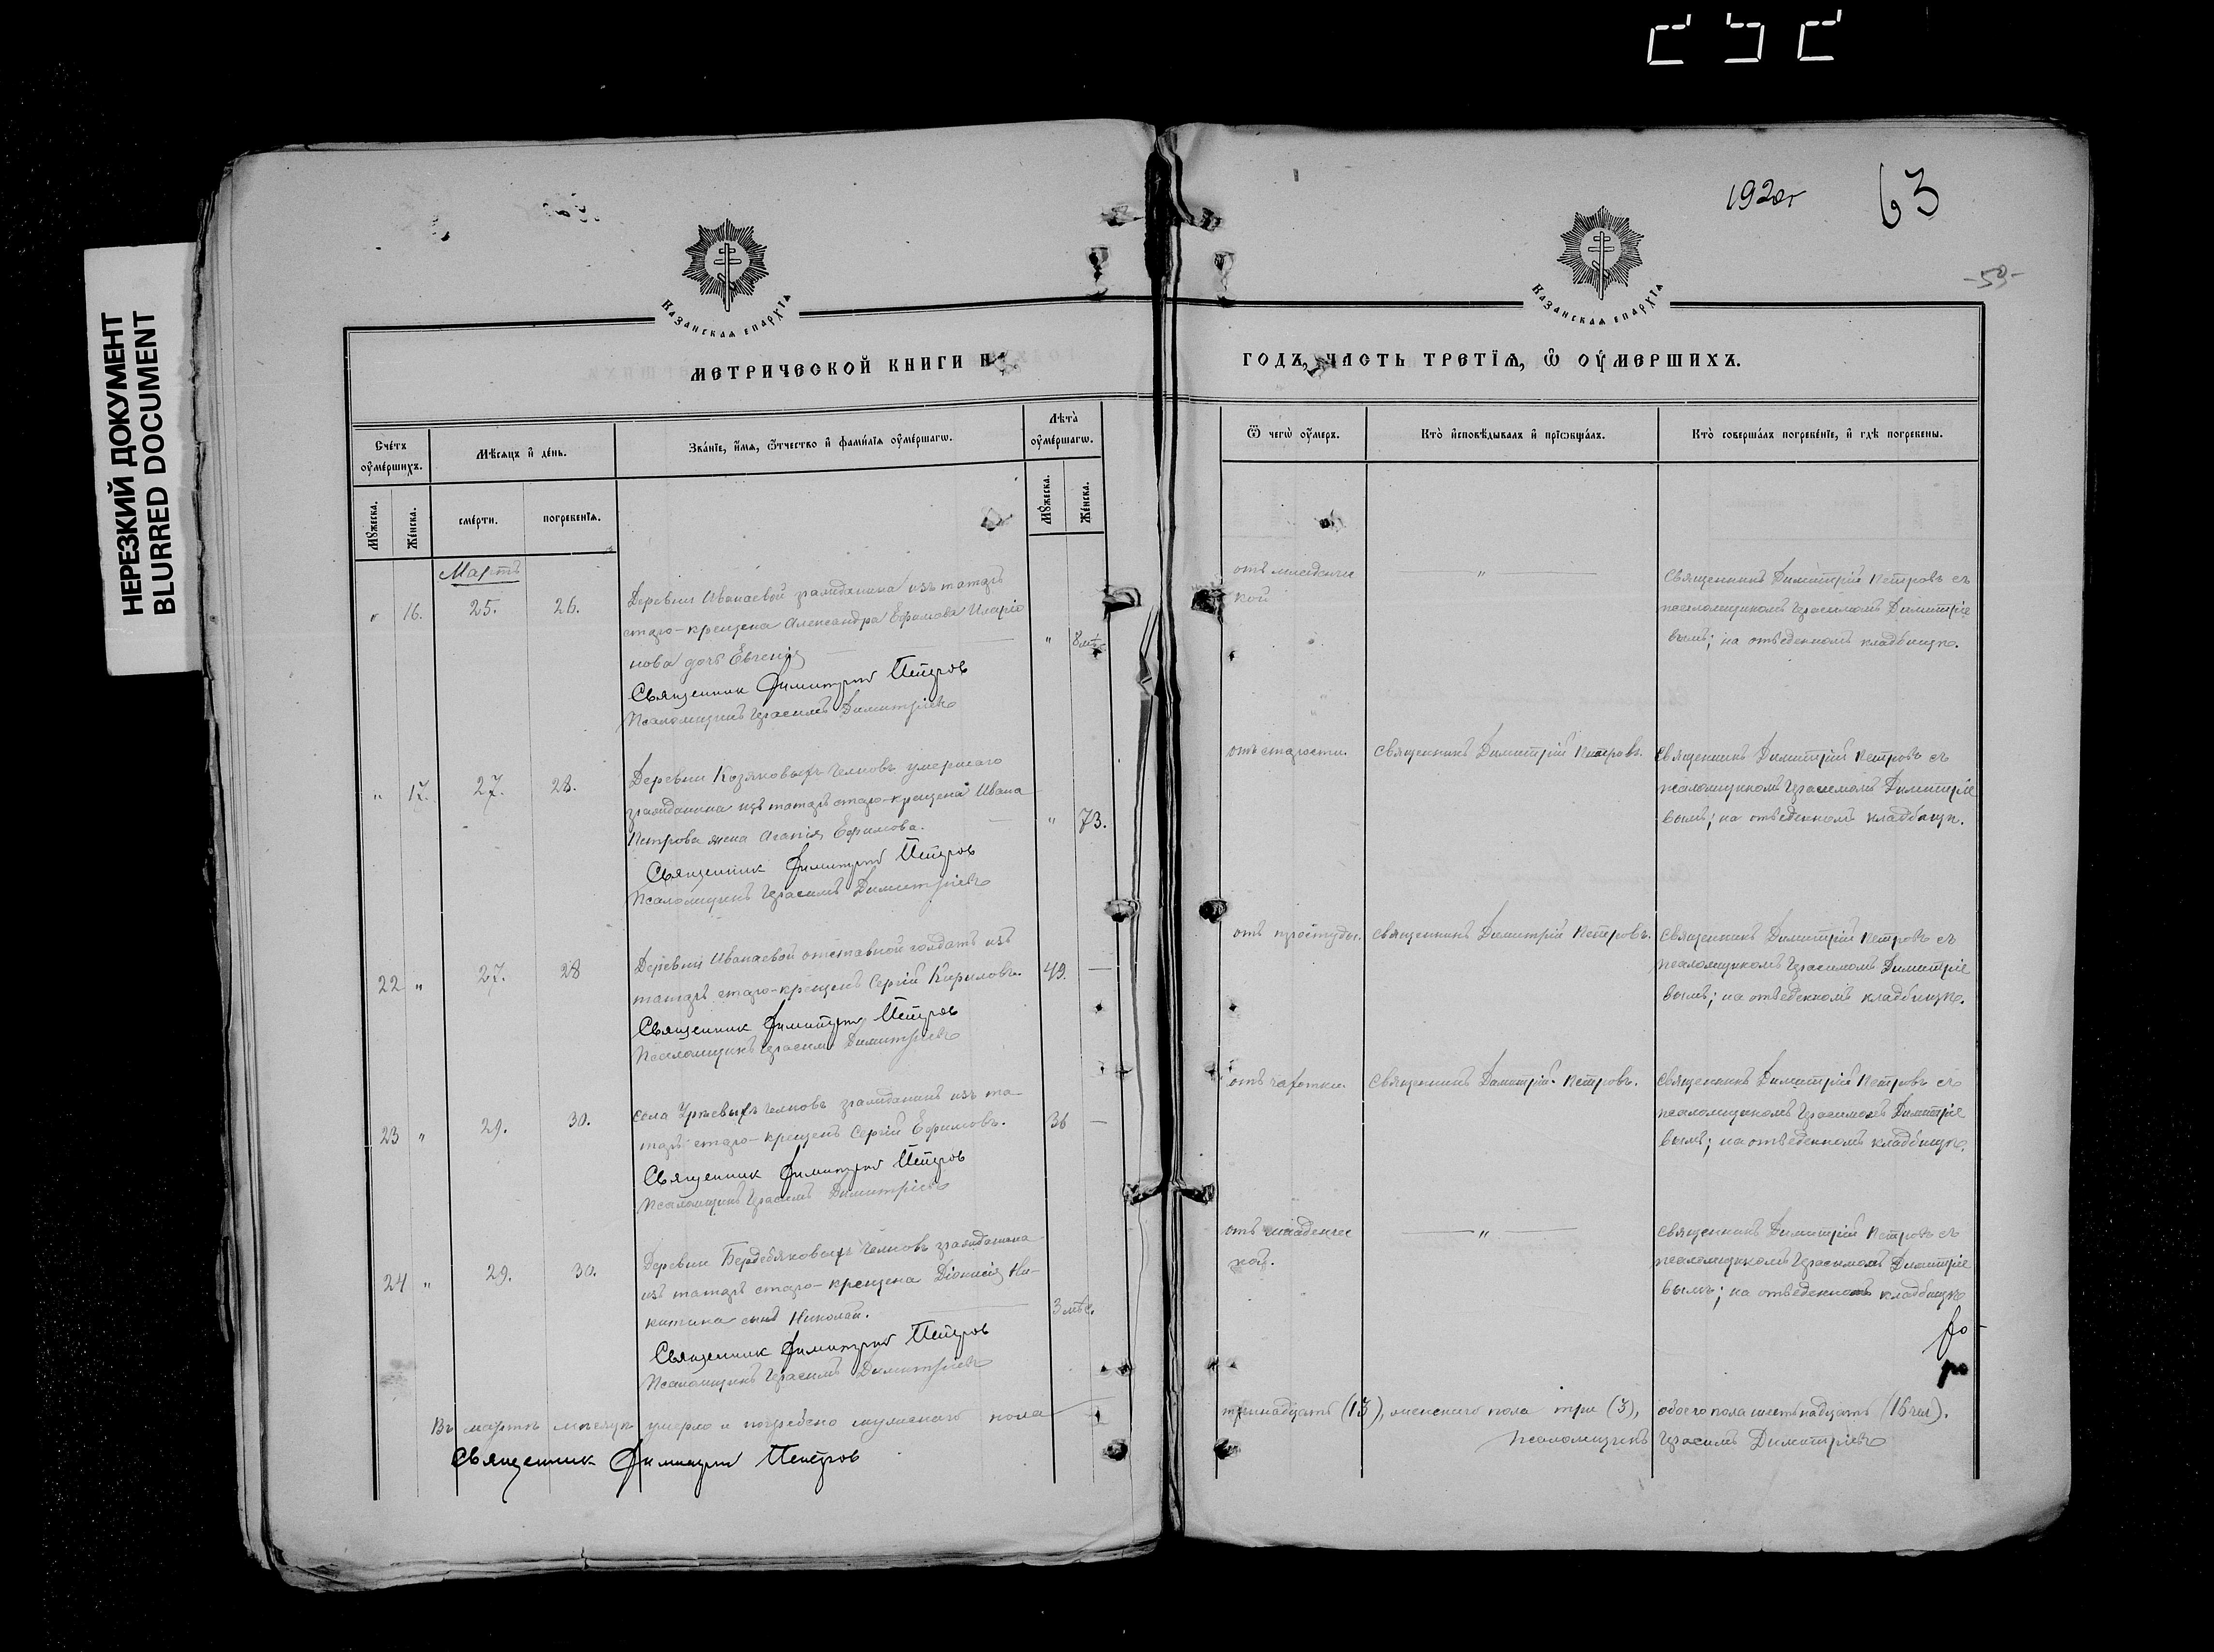 НЕРЕЗКИЙ ДОКУМЕНТ
BLURRED DOCUMENT
1920г
63
-59-
КАЗАНСКАЯ ЕПАРХІЯ
КАЗАНСКАЯ ЕПАРХІЯ
МЕТРИЧЕСКОЙ КНИГИ Н
ГОДЪ, ЧАСТЬ ТРЕТІЯ, Ѡ ОУМЕРШИХЪ.
Счетъ оумершихъ.
Мѣсяцъ и день.
Званіе, имя, ѿчество и фамилія оумершагѡ.
Лѣта оумершагѡ.
Ѿ чегѡ оумеръ.
Кто исповѣдывалъ и пріѡбщалъ.
Кто совершалъ погребеніе, и гдѣ погребены.
Мужеска.
Женска.
смерти.
погребенія.
Мужеска.
Женска.
Мартъ
" 16. 25. 26.
Деревни Иванаевой гражданина изъ татаръ
старо-крещена Александра Ефимова Иларіо
нова дочь Евгенія
" 8 мѣс
Священник Димитрий Петров
Псаломщикъ Герасимъ Димитріевъ
отъ младенче
кой
"
Священникъ Димитрій Петровъ съ
псаломщикомъ Герасимомъ Димитріе
вымъ; на отведенномъ кладбищѣ.
" 17. 27. 28.
Деревни Козяковыхъ Челновъ умершаго
гражданина изъ татаръ старо-крещена Ивана
Петрова жена Агапія Ефимова.
" 73.
Священник Димитрий Петров
Псаломщикъ Герасимъ Димитріевъ
отъ старости.
Священникъ Димитрій Петровъ.
Священникъ Димитрій Петровъ съ
псаломщикомъ Герасимомъ Димитріе
вымъ; на отведенномъ кладбищѣ.
22 " 27. 28
Деревни Иванаевой отставной солдатъ изъ
татаръ старо-крещенъ Сергій Кириловъ.
49. —
Священник Димитрий Петров
Псаломщикъ Герасимъ Димитріевъ
отъ простуды.
Священникъ Димитрій Петровъ.
Священникъ Димитрій Петровъ съ
псаломщикомъ Герасимомъ Димитріе
вымъ; на отведенномъ кладбищѣ.
23 " 29. 30.
Села Урѣевыхъ Челновъ гражданинъ изъ та-
таръ старо-крещенъ Сергій Ефимовъ.
36 —
Священник Димитрий Петров
Псаломщикъ Герасимъ Димитріевъ
отъ чахотки.
Священникъ Димитрій Петровъ.
Священникъ Димитрій Петровъ съ
псаломщикомъ Герасимомъ Димитріе
вымъ; на отведенномъ кладбищѣ.
24 " 29. 30.
Деревни Бердебяковыхъ Челновъ гражданина
изъ татаръ старо-крещена Діонисія Ни-
китина сынъ Николай.
3 мѣс.
Священник Димитрий Петров
Псаломщикъ Герасимъ Димитріевъ
отъ младенчес
кой.
"
Священникъ Димитрій Петровъ съ
псаломщикомъ Герасимомъ Димитріе
вымъ; на отведенномъ кладбищѣ
Въ мартѣ мѣсяцѣ умерло и погребено мужскаго пола
тринадцать (13), женскаго пола три (3), обоего пола шестьнадцать (16 чел).
Священник Димитрий Петров
Псаломщикъ Герасимъ Димитріевъ